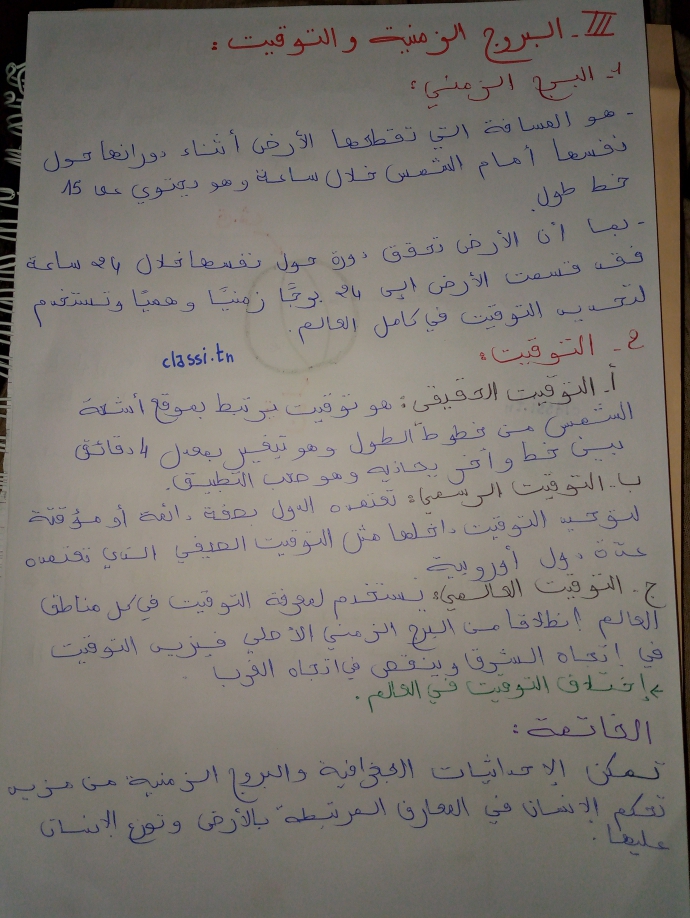 III - البروج الزمنية والتوقيت :
1- البرج الزمني :
- هو المسافة التي تقطعها الأرض أثناء دورانها حول
نفسها أمام الشمس خلال ساعة وهو يحتوي على 15
خط طول.
- بما أن الأرض تحقق دورة حول نفسها خلال 24 ساعة
فقد قسمت الأرض إلى 24 برجًا زمنيًا وهميًا وتستخدم
لتحديد التوقيت في كامل العالم.
classi.tn
2- التوقيت :
أ- التوقيت الحقيقي : هو توقيت يرتبط بموقع أشعة
الشمس من خطوط الطول وهو تيغير بمعدل 4 دقائق
بين خط وآخر يحاذيه وهو صعب التطبيق.
ب- التوقيت الرسمي : تعتمده الدول بصفة دائمة أو مؤقتة
لتوحيد التوقيت داخلها مثل التوقيت الصيفي الذي تعتمده
عدّة دول أوروبية
ج- التوقيت العالمي : نستخدم لمعرفة التوقيت في كل مناطق
العالم إنطلاقا من البرج الزمني الأصلي فيزيد التوقيت
في إتجاه الشرق وينقص في اتجاه الغرب
> إختلاف التوقيت في العالم .
الخاتمة :
تمكن الإحداثيات الجغرافية والبروج الزمنية من مزيد
تحكم الإنسان في المعارف المرتبطة بالأرض وتوزع الإنسان
عليها .